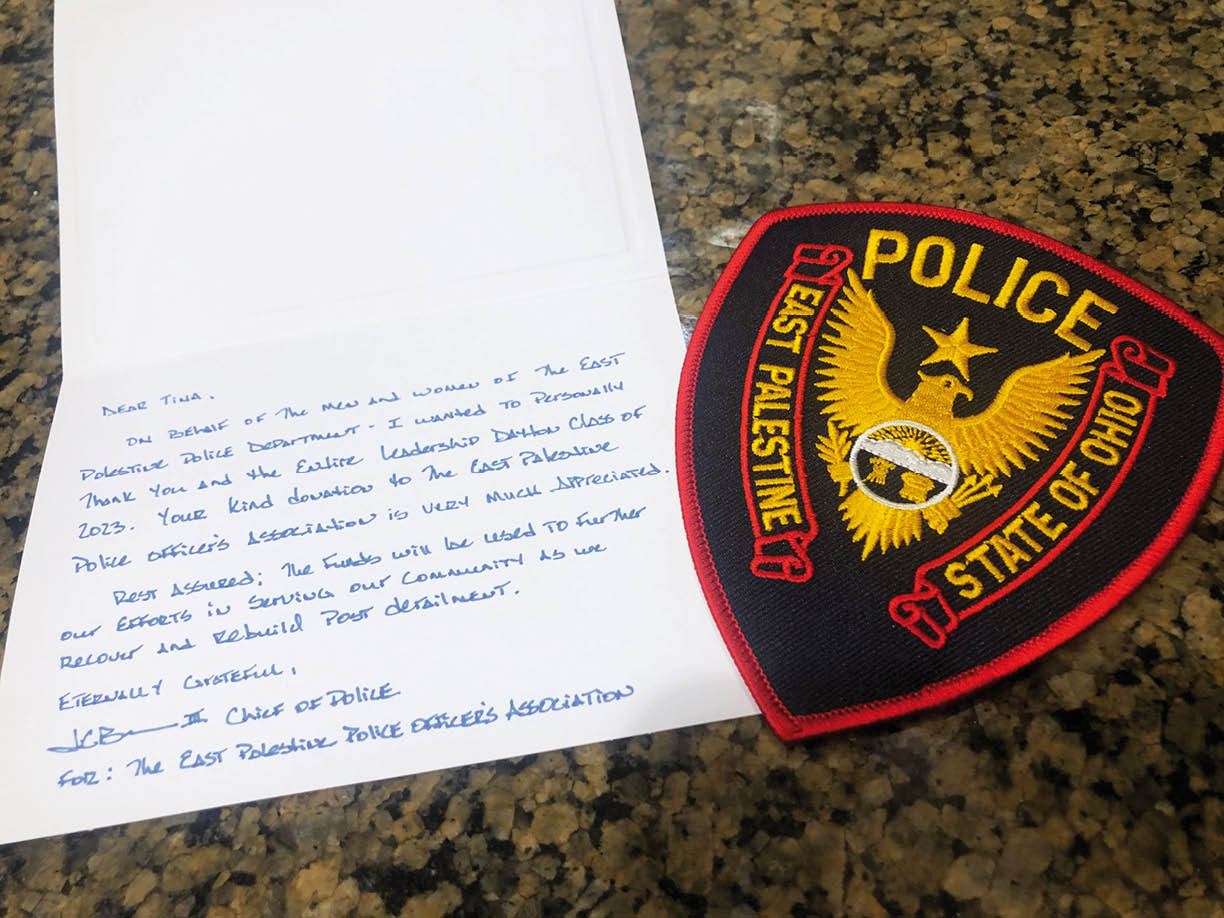 DEAR TINA,
ON BEHALF OF THE MEN AND WOMEN OF THE EAST
PALESTINE POLICE DEPARTMENT - I WANTED TO PERSONALLY
THANK YOU AND THE ENTIRE LEADERSHIP DAYTON CLASS OF
2023. YOUR KIND DONATION TO THE EAST PALESTINE
POLICE OFFICER'S ASSOCIATION IS VERY MUCH APPRECIATED.
REST ASSURED; THE FUNDS WILL BE USED TO FURTHER
OUR EFFORTS IN SERVING OUR COMMUNITY AS WE
RECOVER AND REBUILD POST DERAILMENT.
ETERNALLY GRATEFUL,
III CHIEF OF POLICE
FOR: THE EAST PALESTINE POLICE OFFICER'S ASSOCIATION
POLICE
EAST PALESTINE
STATE OF OHIO